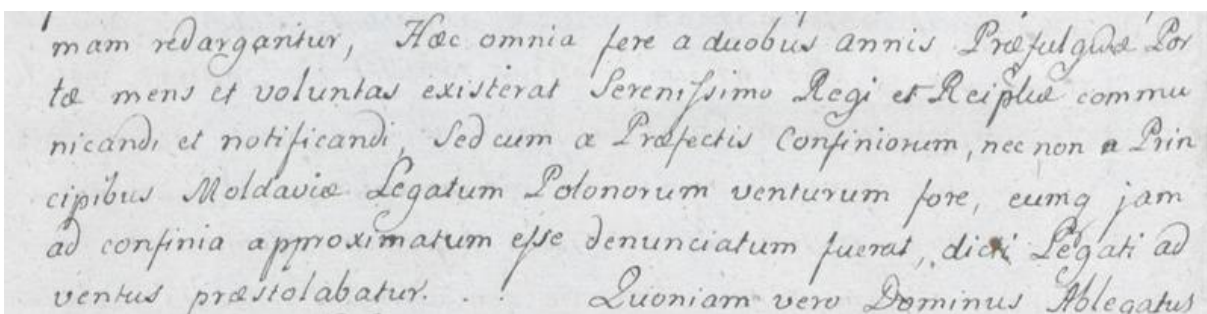 mam redargantur, Hæc omnia fere a duobus annis Præfulgidæ Por
tæ mens et voluntas existerat Serenissimo Regi et Reiplicæ commu
nicandi et notificandi, Sed cum a Præfectis Confiniorum, nec non a Prin
cipibus Moldaviæ Legatum Polonorum venturum fore, eumq jam
ad confinia approximatum esse denunciatum fuerat, dicti Legati ad
ventus præstolabatur. . . Quoniam vero Dominus Ablegatus